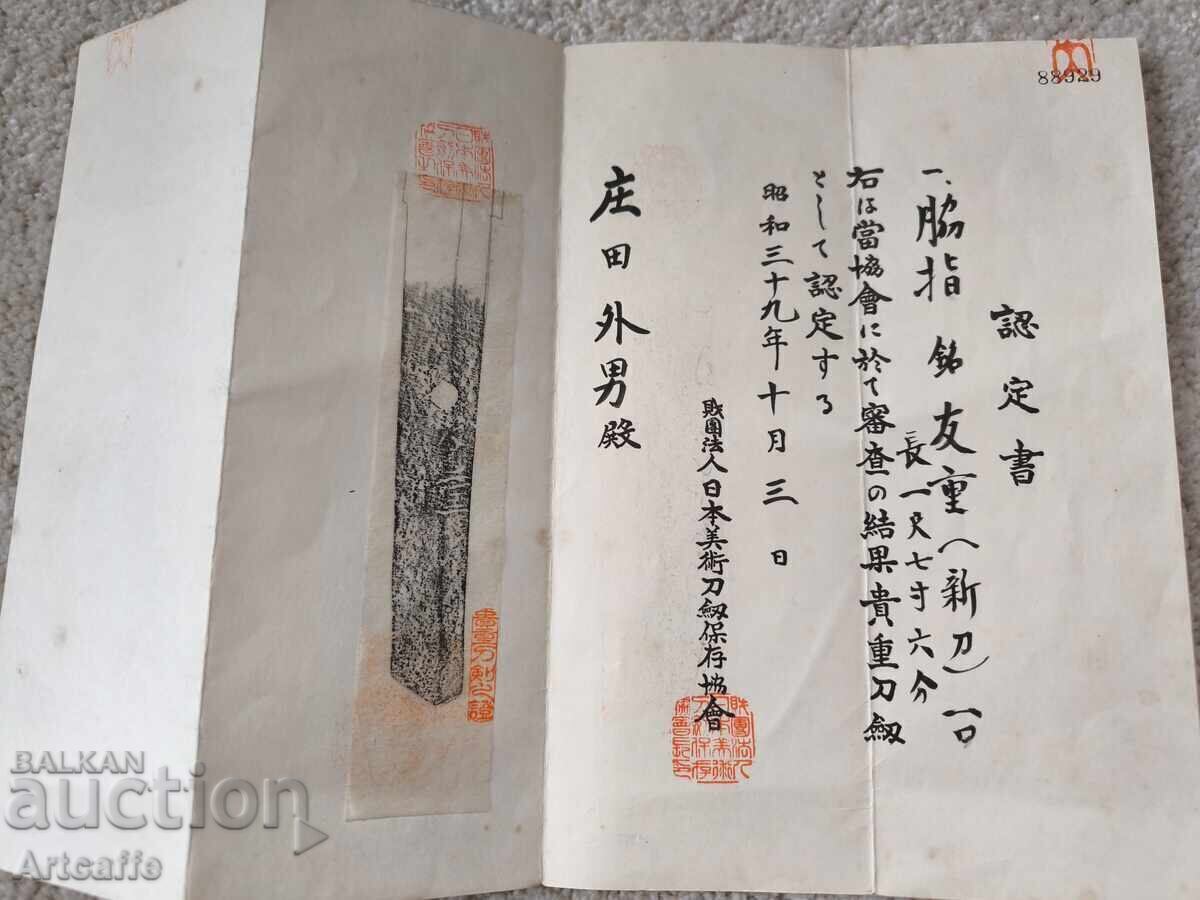 88929
認定書
一、脇指 銘 友重(新刀)一口
長一尺七寸六分
右は當協會に於て審査の結果貴重刀劔
として認定する
昭和三十九年十月三日
財團法人日本美術刀劔保存協會
庄田外男殿
貴重刀剣之證
BALKAN
auction
Artcaffe